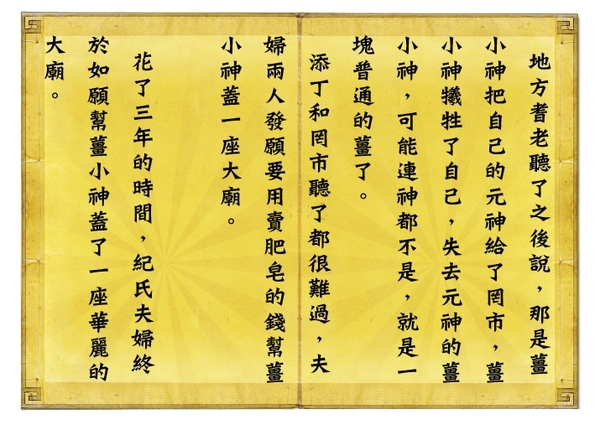 地方耆老聽了之後說，那是薑
小神把自己的元神給了罔市，薑
小神犧牲了自己，失去元神的薑
小神，可能連神都不是，就是一
塊普通的薑了。
添丁和罔市聽了都很難過，夫
婦兩人發願要用賣肥皂的錢幫薑
小神蓋一座大廟。
花了三年的時間，紀氏夫婦終
於如願幫薑小神蓋了一座華麗的
大廟。